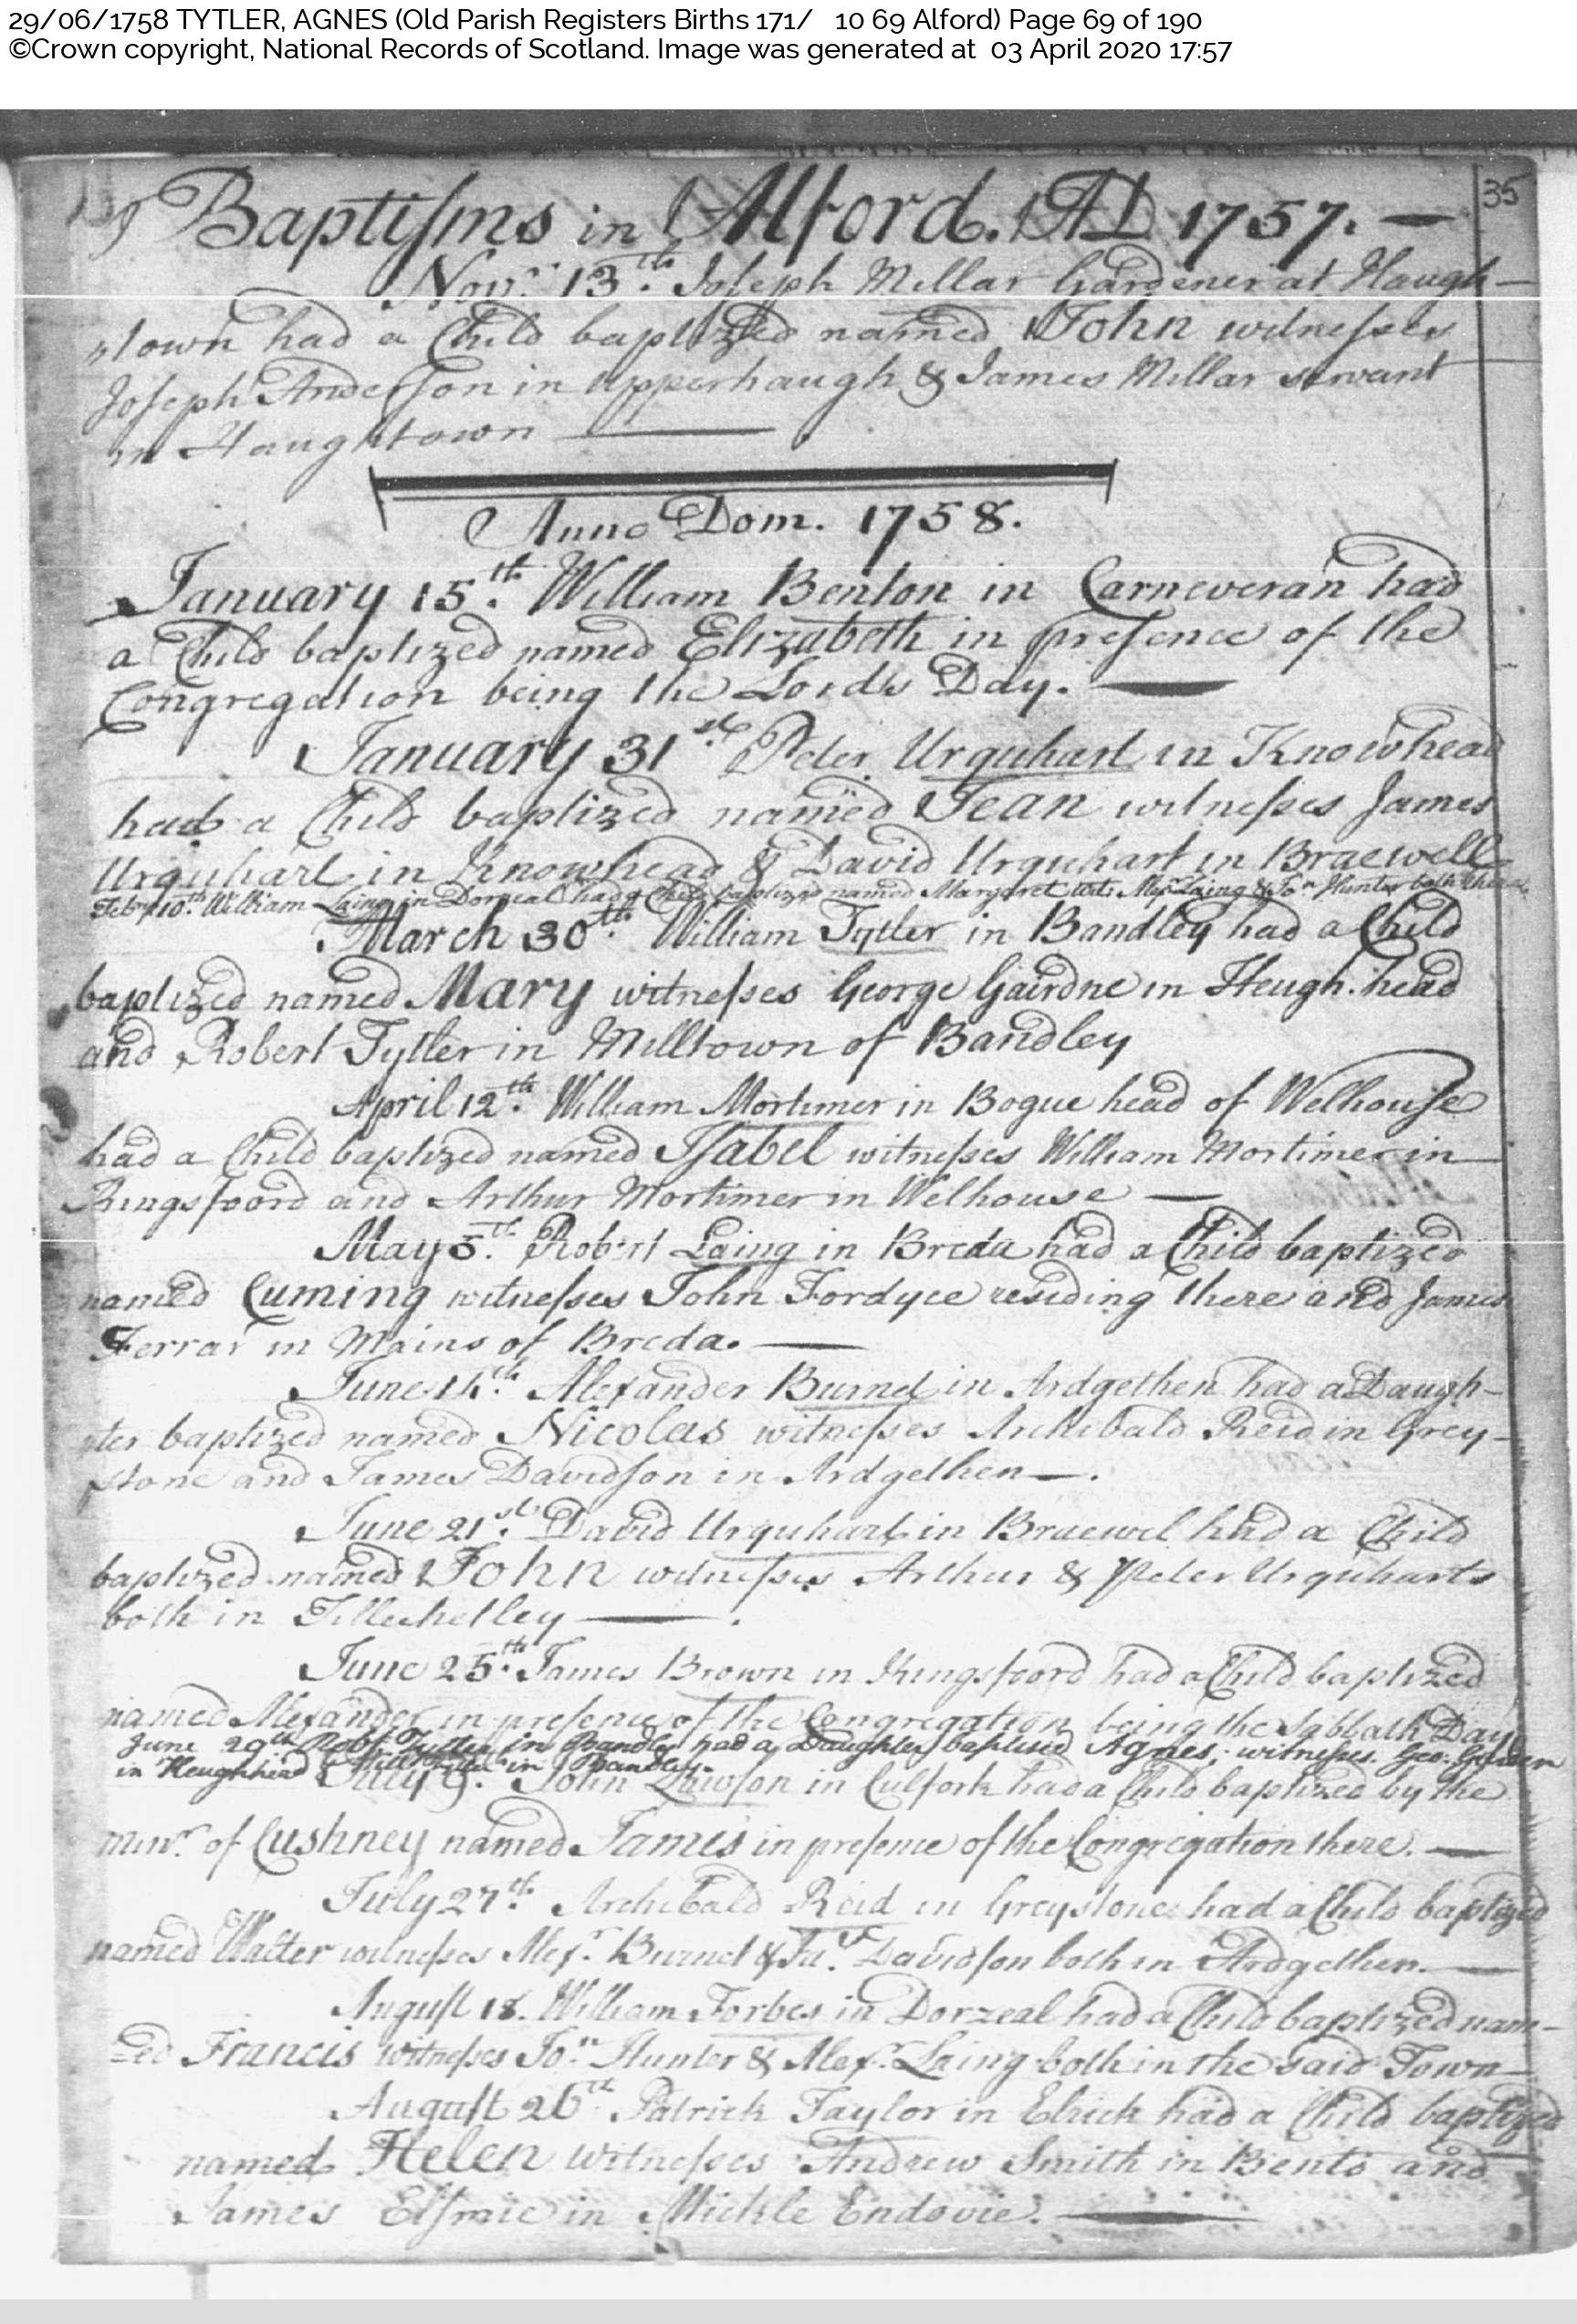 29/06/1758 TYTLER, AGNES (Old Parish Registers Births 171/ 10 69 Alford) Page 69 of 190
©Crown copyright, National Records of Scotland. Image was generated at 03 April 2020 17:57
35
Baptiſms in Alford. AD 1757. —
Novr. 13th. Joſeph Millar Gardener at Haugh-
town had a Child baptized named John witneſses
Joſeph Anderſon in upperhaugh & James Millar servant
in Haughtown —
Anno Dom. 1758.
January 15th. William Benton in Carneveran had
a Child baptized named Elizabeth in preſence of the
Congregation being the Lords Day. —
January 31st. Peter Urquhart in Knowhead
had a Child baptized named Jean witneſses James
Urquhart in Knowhead & David Urquhart in Braewell
Febry 10th. William Laing in Dorzeal had a Child baptized named Margaret wits. Alexr. Laing & Jon. Hunter both there
March 30th. William Tytler in Bandley had a Child
baptized named Mary witneſses George Gairdne in Heugh.head
and Robert Tytler in Milltown of Bandley
April 12th. William Mortimer in Bogue head of Welhouſe
had a Child baptized named Iſabel witneſses William Mortimer in
Kingsfoord and Arthur Mortimer in Welhouse —
May 5th. Robert Laing in Breda had a Child baptized
named Cuming witneſses John Fordyce residing there and James
Ferrar in Mains of Breda. —
June 14th. Alexander Burnet in Ardgethen had a Daugh-
ter baptized named Nicolas witneſses Archibald Reid in Grey-
stone and James Davidſon in Ardgethen —.
June 21st. David Urquhart in Braewel had a Child
baptized named John witneſses Arthur & Peter Urquharts
both in Tillechetley —.
June 25th. James Brown in Kingsfoord had a Child baptized
named Alexander in preſence of the Congregation being the Sabbath Day
June 29th Robt. Tytler in Bandley had a Daughter baptised Agnes; witneſses. Geo. Garden
in Heughhead & Will. Tytler in Bandley.
July 9. John Lawſon in Culfork had a Child baptized by the
Minr. of Cushney named James in preſence of the Congregation there. —
July 27th. Archibald Reid in Greystone had a Child baptized
named Walter witneſses Alexr. Burnet & Ja. Davidſon both in Ardgethen. —
Auguſt 18. William Forbes in Dorzeal had a Child baptized nam-
ed Francis witneſses Jon. Hunter & Alexr. Laing both in the said Town —
Auguſt 26th. Patrick Taylor in Elrick had a Child baptized
named Helen witneſses Andrew Smith in Bents and
James Elſmie in Mickle Endovie. —